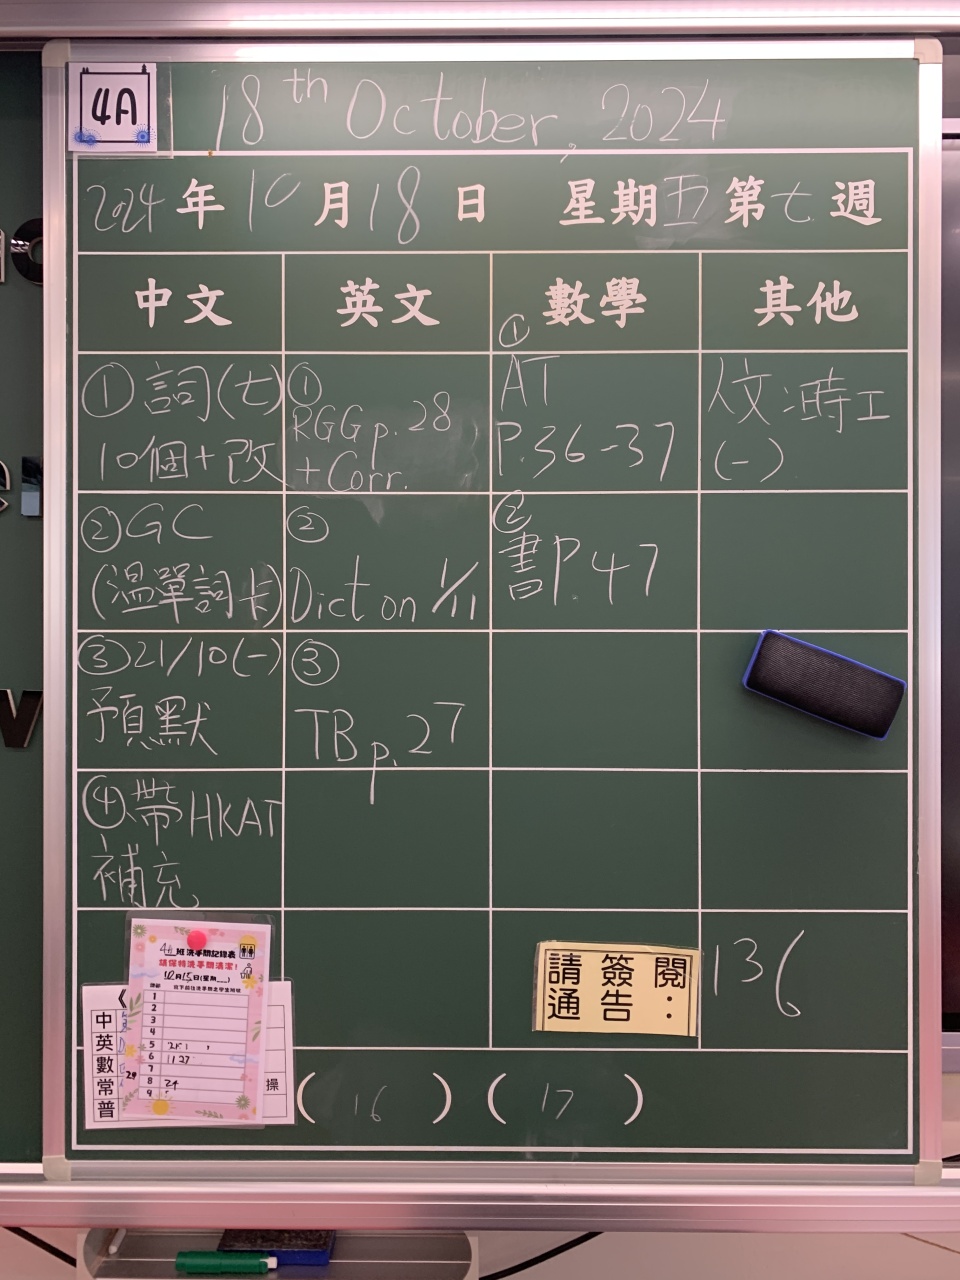 4A
18th October, 2024
2024年10月18日 星期五第七週
中文 英文 數學 其他
① 詞(七)
10個+改
② GC
(溫單詞卡)
③ 21/10(一)
預默
④ 帶HKAT
補充
①
RGG p. 28
+ Corr.
②
Dict on 1/11
③
TB p. 27
①
AT
P.36-37
②
書P.47
人文
(一)
請簽閱
通告:
136
(16) (17)
4A班洗手間記錄表
請保持洗手間清潔!
10月15日(星期__)
1
2
3
4
5
6 11 27
7
8 24
9
29
中
英
數
常
普
操